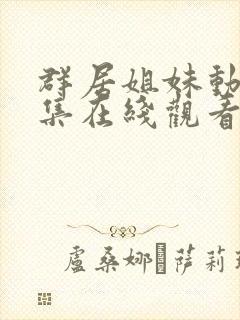 群居姐妹動
集在綫觀看
盧桑娜·薩莉